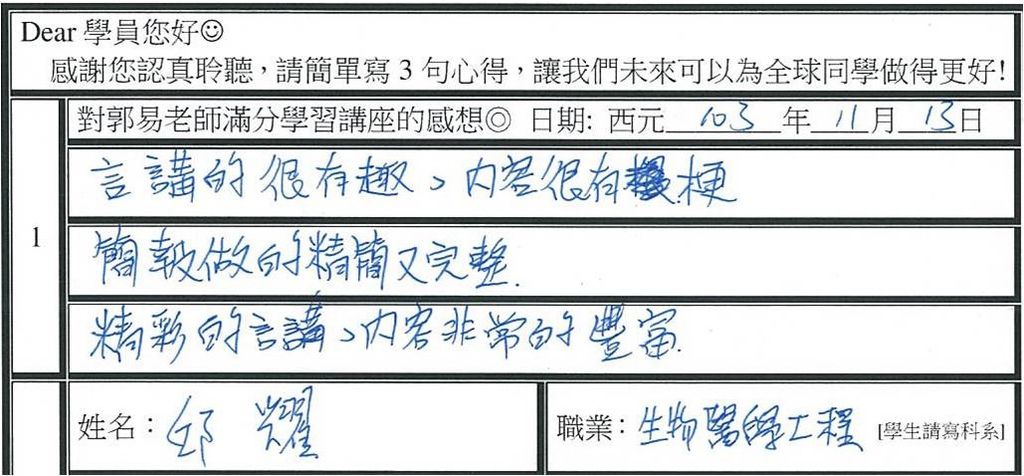 Dear 學員您好☺
感謝您認真聆聽，請簡單寫 3 句心得，讓我們未來可以為全球同學做得更好!
對郭易老師滿分學習講座的感想◎ 日期: 西元 103 年 11 月 13 日
1
言講的很有趣、內容很有梗
簡報做的精簡又完整.
精彩的言講、內容非常的豐富.
姓名：邱 耀
職業：生物醫學工程 [學生請寫科系]